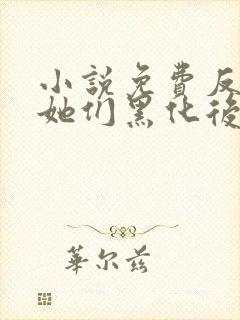 小説免費反
她们黑化後
華尔兹